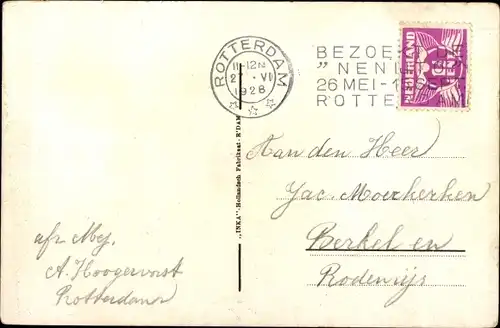 ROTTERDAM
11-12N
2 . VI
1928
BEZOEK DE
"NENIJTO"
26 MEI-1
ROTTERDAM
NEDERLAND
"INKA" - Hollandsch Fabrikaat - R'DAM
Aan den Heer
Jac. Moerkerken
Berkel en
Rodenrijs
afz. Mej.
A. Hoogervorst
Rotterdam